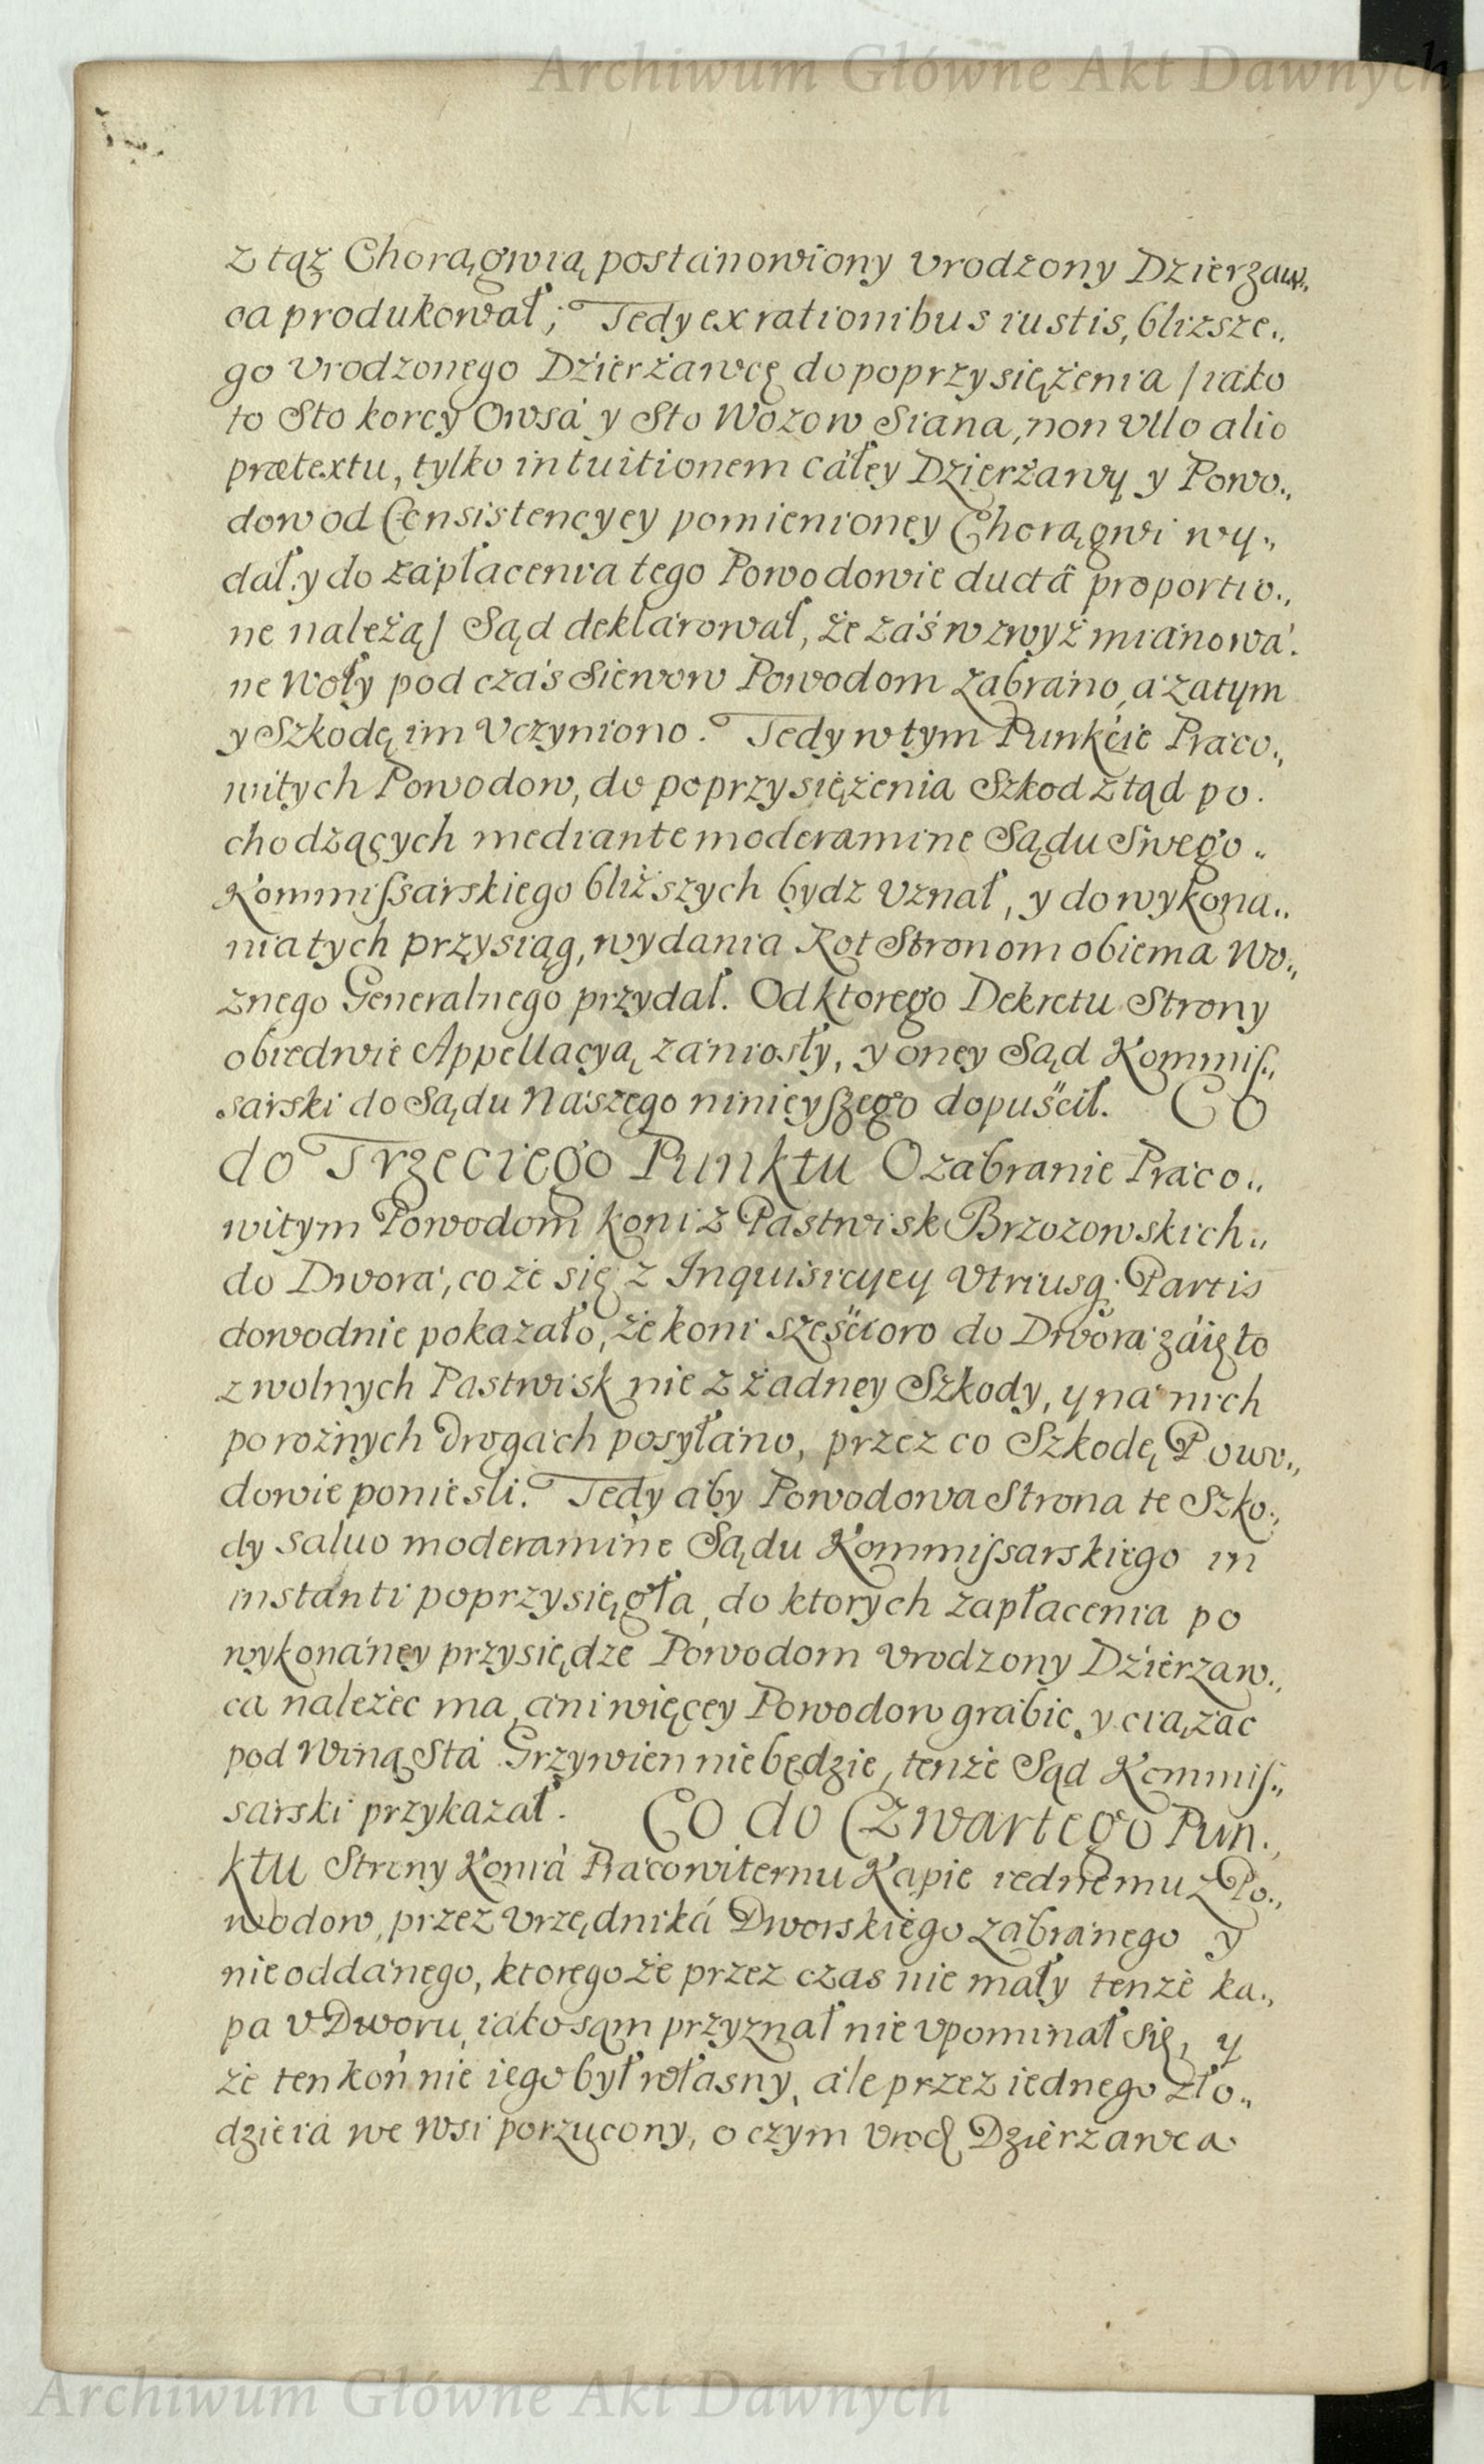 Archiwum Główne Akt Dawnych
z tąż Chorągwią postánowiony Vrodzony Dzierzaw„
ca produkował; Tedy ex rationibus iustis, bliższe„
go Vrodzonego Dźierżáwcę do poprzysiężenia / iáko
to Sto korcy Owsá y Sto Wozow Siana, non Vllo alio
prætextu, tylko intuitionem całey Dzierżawy y Powo„
dow od Consistencyey pomienioney Chorągwi wy„
dał y do zápłacenia tego Powodowie ductâ proportio„
ne należą / Sąd deklárował, że záś wzwyż miánowá„
ne Woły pod czás Siewow Powodom zábráno, á zátym
y Szkodę im Vczyniono. Tedy w tym Punkćie Práco„
witych Powodow, do poprzysiężenia Szkod ztąd po„
chodzących mediante moderamine Sądu Swego„
Kommiſsárskiego bliższych bydz Vznał, y do wykona„
nia tych przysiąg, wydania Rot Stronom obiema Wo„
znego Generalnego przydał. Od ktorego Dekretu Strony
obiedwie Appellacyą zániosły, y oney Sąd Kommiſ„
sárski do Sądu Nászego ninieyſzego dopuśćił. Co
do Trzeciego Punktu O zábranie Práco„
witym Powodom koni z Pastwisk Brzozowskich„
do Dworá, co że się z Inquisicyey Vtriusq. Partis
dowodnie pokazáło, że koni sześćioro do Dworá záięto
z wolnych Pastwisk nie z żadney Szkody, y ná nich
po rożnych drogách posyłáno, przez co Szkodę Powo„
dowie ponieśli. Tedy áby Powodowa Strona te Szko„
dy saluo moderamine Sądu Kommiſsarskiego in
instánti poprzysięgła, do ktorych zápłacenia po
wykonáney przysiędze Powodom Vrodzony Dźierzaw„
ca należec ma, áni więcey Powodow grábic y ciążác
pod Winą Stá Grzywien nie będzie, tenże Sąd Kommiſ„
sárski przykazał. Co do Czwartego Pun„
ktu Strony Koniá Prácowitemu Kapie iednemu z Po„
wodow, przez Vrzędniká Dworskiego zábránego y
nie oddánego, ktorego że przez czas nie máły tenże Ka„
pa V Dworu, iáko sąm przyznał nie Vpominał się, y
że ten koń nie iego był własny, ále przez iednego zło„
dzieiá we Wsi porzucony, o czym Vrodz Dzierżawca
Archiwum Główne Akt Dawnych